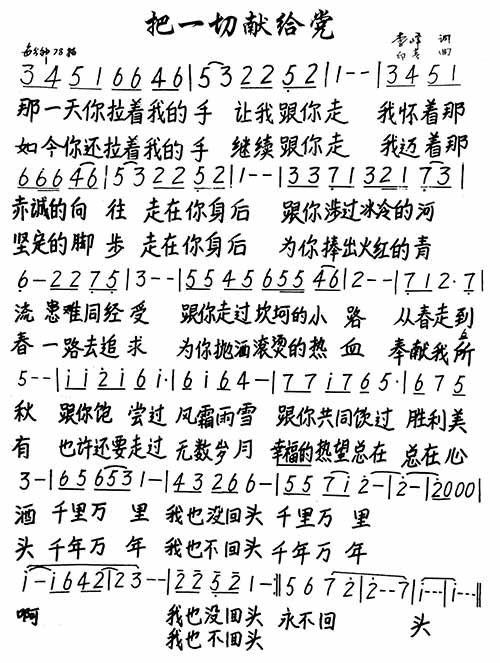 把一切献给党
每分钟78拍
词
曲
3 4 5 1 6 6 4 6 | 5 3 2 2 5 2 | 1 - - | 3 4 5 1
那一天你拉着我的手 让我跟你走 我怀着那
如今你还拉着我的手 继续跟你走 我迈着那
6 6 6 4 6 | 5 3 2 2 5 2 | 1 - - | 3 3 7 1 3 2 1 7 3 |
赤诚的向 往 走在你身后 跟你涉过冰冷的河
坚定的脚 步 走在你身后 为你捧出火红的青
6 - 2 2 7 5 | 3 - - | 5 5 4 5 6 5 5 4 6 | 2 - - | 7 1 2 · 7 |
流 患难同经受 跟你走过坎坷的小 路 从春走到
春 一路去追求 为你抛洒滚烫的热 血 奉献我所
5 - - | i i 2 i 6 i · | 6 i 6 4 - | 7 7 i 7 6 5 · | 6 7 5
秋 跟你饱 尝过 风霜雨雪 跟你共同饮过 胜利美
有 也许还要走过 无数岁月 幸福的热望总在 总在心
3 - | 6 5 6 5 3 1 - | 4 3 2 6 6 - | 5 5 7 i 2 - | 2 - | 2 0 0 0 |
酒 千里万 里 我也没回头 千里万 里
头 千年万 年 我也不回头 千年万 年
i - i 6 4 2 | 2 3 - - | 2 2 5 2 1 - | 5 6 7 2 | 2 - - 7 | i - - | i - - - |
啊 我也没回头 永不回 头
我也不回头